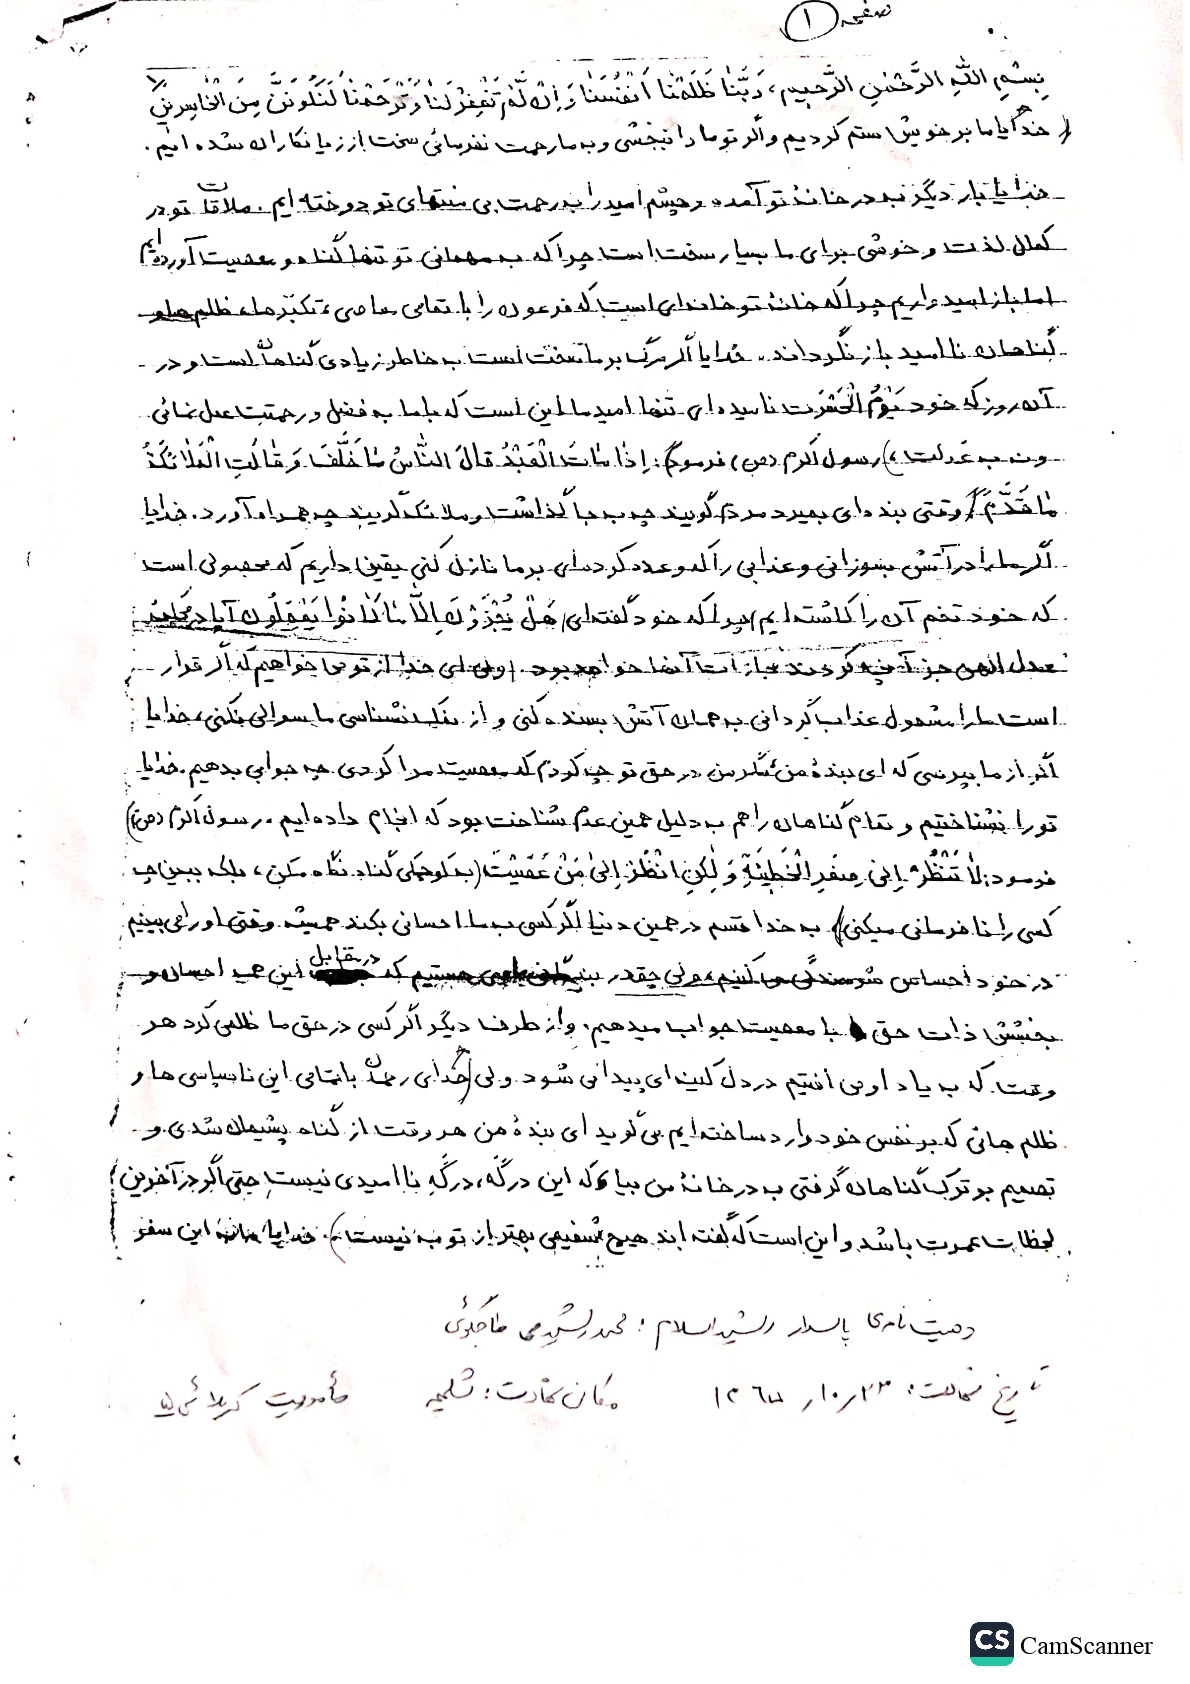 صفحه ۱
بِسْمِ اللهِ الرَّحْمٰنِ الرَّحیمِ، رَبَّنٰا ظَلَمْنٰا اَنْفُسَنٰا وَ اِنْ لَّمْ تَغْفِرْ لَنٰا وَ تَرْحَمْنٰا لَنَکُونَنَّ مِنَ الْخٰاسِرینَ
خدایا ما بر خویش ستم کردیم و اگر تو ما را نبخشی و به ما رحمت نفرمائی سخت از زیانکاران شده ایم.
خدایا بار دیگر به در خانهٔ تو آمده و چشم امید را به رحمت بی منتهای تو دوخته ایم. ملاقات تو در
کمال لذت و خوشی برای ما بسیار سخت است چرا که به مهمانی تو تنها گناه و معصیت آورده ایم
اما باز امیدواریم چرا که خانهٔ تو خانه‌ای است که فرعون را با تمامی معاصی، تکبّرها، ظلم ها و
گناهان نا امید باز نگرداند. خدایا اگر مرگ بر ما سخت است به خاطر زیادی گناهان است و در
آن روز که خود یَوْمُ الْحَسْرَت نامیده‌ای تنها امید ما این است که با ما به فضل و رحمتت عمل نمائی
و نه به عدلت، رسول اکرم (ص) فرمود: اِذٰا مٰاتَ الْعَبْدُ قٰالَ النّٰاسُ مٰا خَلَّفَ وَ قٰالَتِ الْمَلٰائکَةُ
مٰا قَدَّمَ (وقتی بنده‌ای بمیرد مردم گویند چه به جا گذاشت و ملائکه گویند چه همراه آورد. خدایا
اگر ما را در آتش بسوزانی و عذابی را که وعده کرده‌ای بر ما نازل کنی یقین داریم که محصولی است
که خود تخم آن را کاشته ایم چرا که خود گفته‌ای هَلْ یُجْزَوْنَ اِلّٰا مٰا کٰانُوا یَعْمَلُون آیا در
عدل الهی جز آنچه کردند مجازات آنها خواهد بود. ولی ای خدا از تو می خواهیم که اگر قرار
است ما را مشمول عذاب گردانی به همان آتش بسنده کنی و از نمک نشناسی ما سوالی نکنی، خدایا
اگر از ما بپرسی که ای بندهٔ من مگر من در حق تو چه کردم که معصیت مرا کردی چه جوابی بدهیم. خدایا
تو را نشناختیم و تمام گناهان را هم به دلیل همین عدم شناخت بود که انجام داده ایم. رسول اکرم (ص)
فرمود: لٰا تَنْظُرْ اِلیٰ صِغَرِ الْخَطیئَةِ وَ لٰکِنِ انْظُرْ اِلیٰ مَنْ عَصَیْتَ (به کوچکی گناه نگاه مکن، بلکه ببین چه
کسی را نافرمانی میکنی) به خدا قسم در همین دنیا اگر کسی به ما احسانی بکند همیشه وقتی او را می بینیم
در خود احساس شرمندگی می کنیم، ولی چقدر هستیم که در مقابل این همه احسان و
بخشش ذات حق با معصیت جواب میدهیم. و از طرف دیگر اگر کسی در حق ما ظلمی کرد هر
وقت که به یاد او می افتیم در دل کینه‌ای پیدا نمی شود ولی خدای رحمان با تمامی این ناسپاسی ها و
ظلم هائی که بر نفس خود وارد ساخته ایم می گوید ای بندهٔ من هر وقت از گناه پشیمان شدی و
تصمیم بر ترک گناهان گرفتی به در خانهٔ من بیا که این درگه، درگهِ نا امیدی نیست حتی اگر در آخرین
لحظات عمرت باشد و این است که گفته اند هیچ شفیعی بهتر از توبه نیست). خدایا این سفر
وصیت نامه‌ی پاسدار رشید اسلام: محمد
تاریخ شهادت: ۱۳۶۵ / ۱۰ / ۲۳ مکان شهادت: شلمچه مأموریت کربلای ۵
CS CamScanner